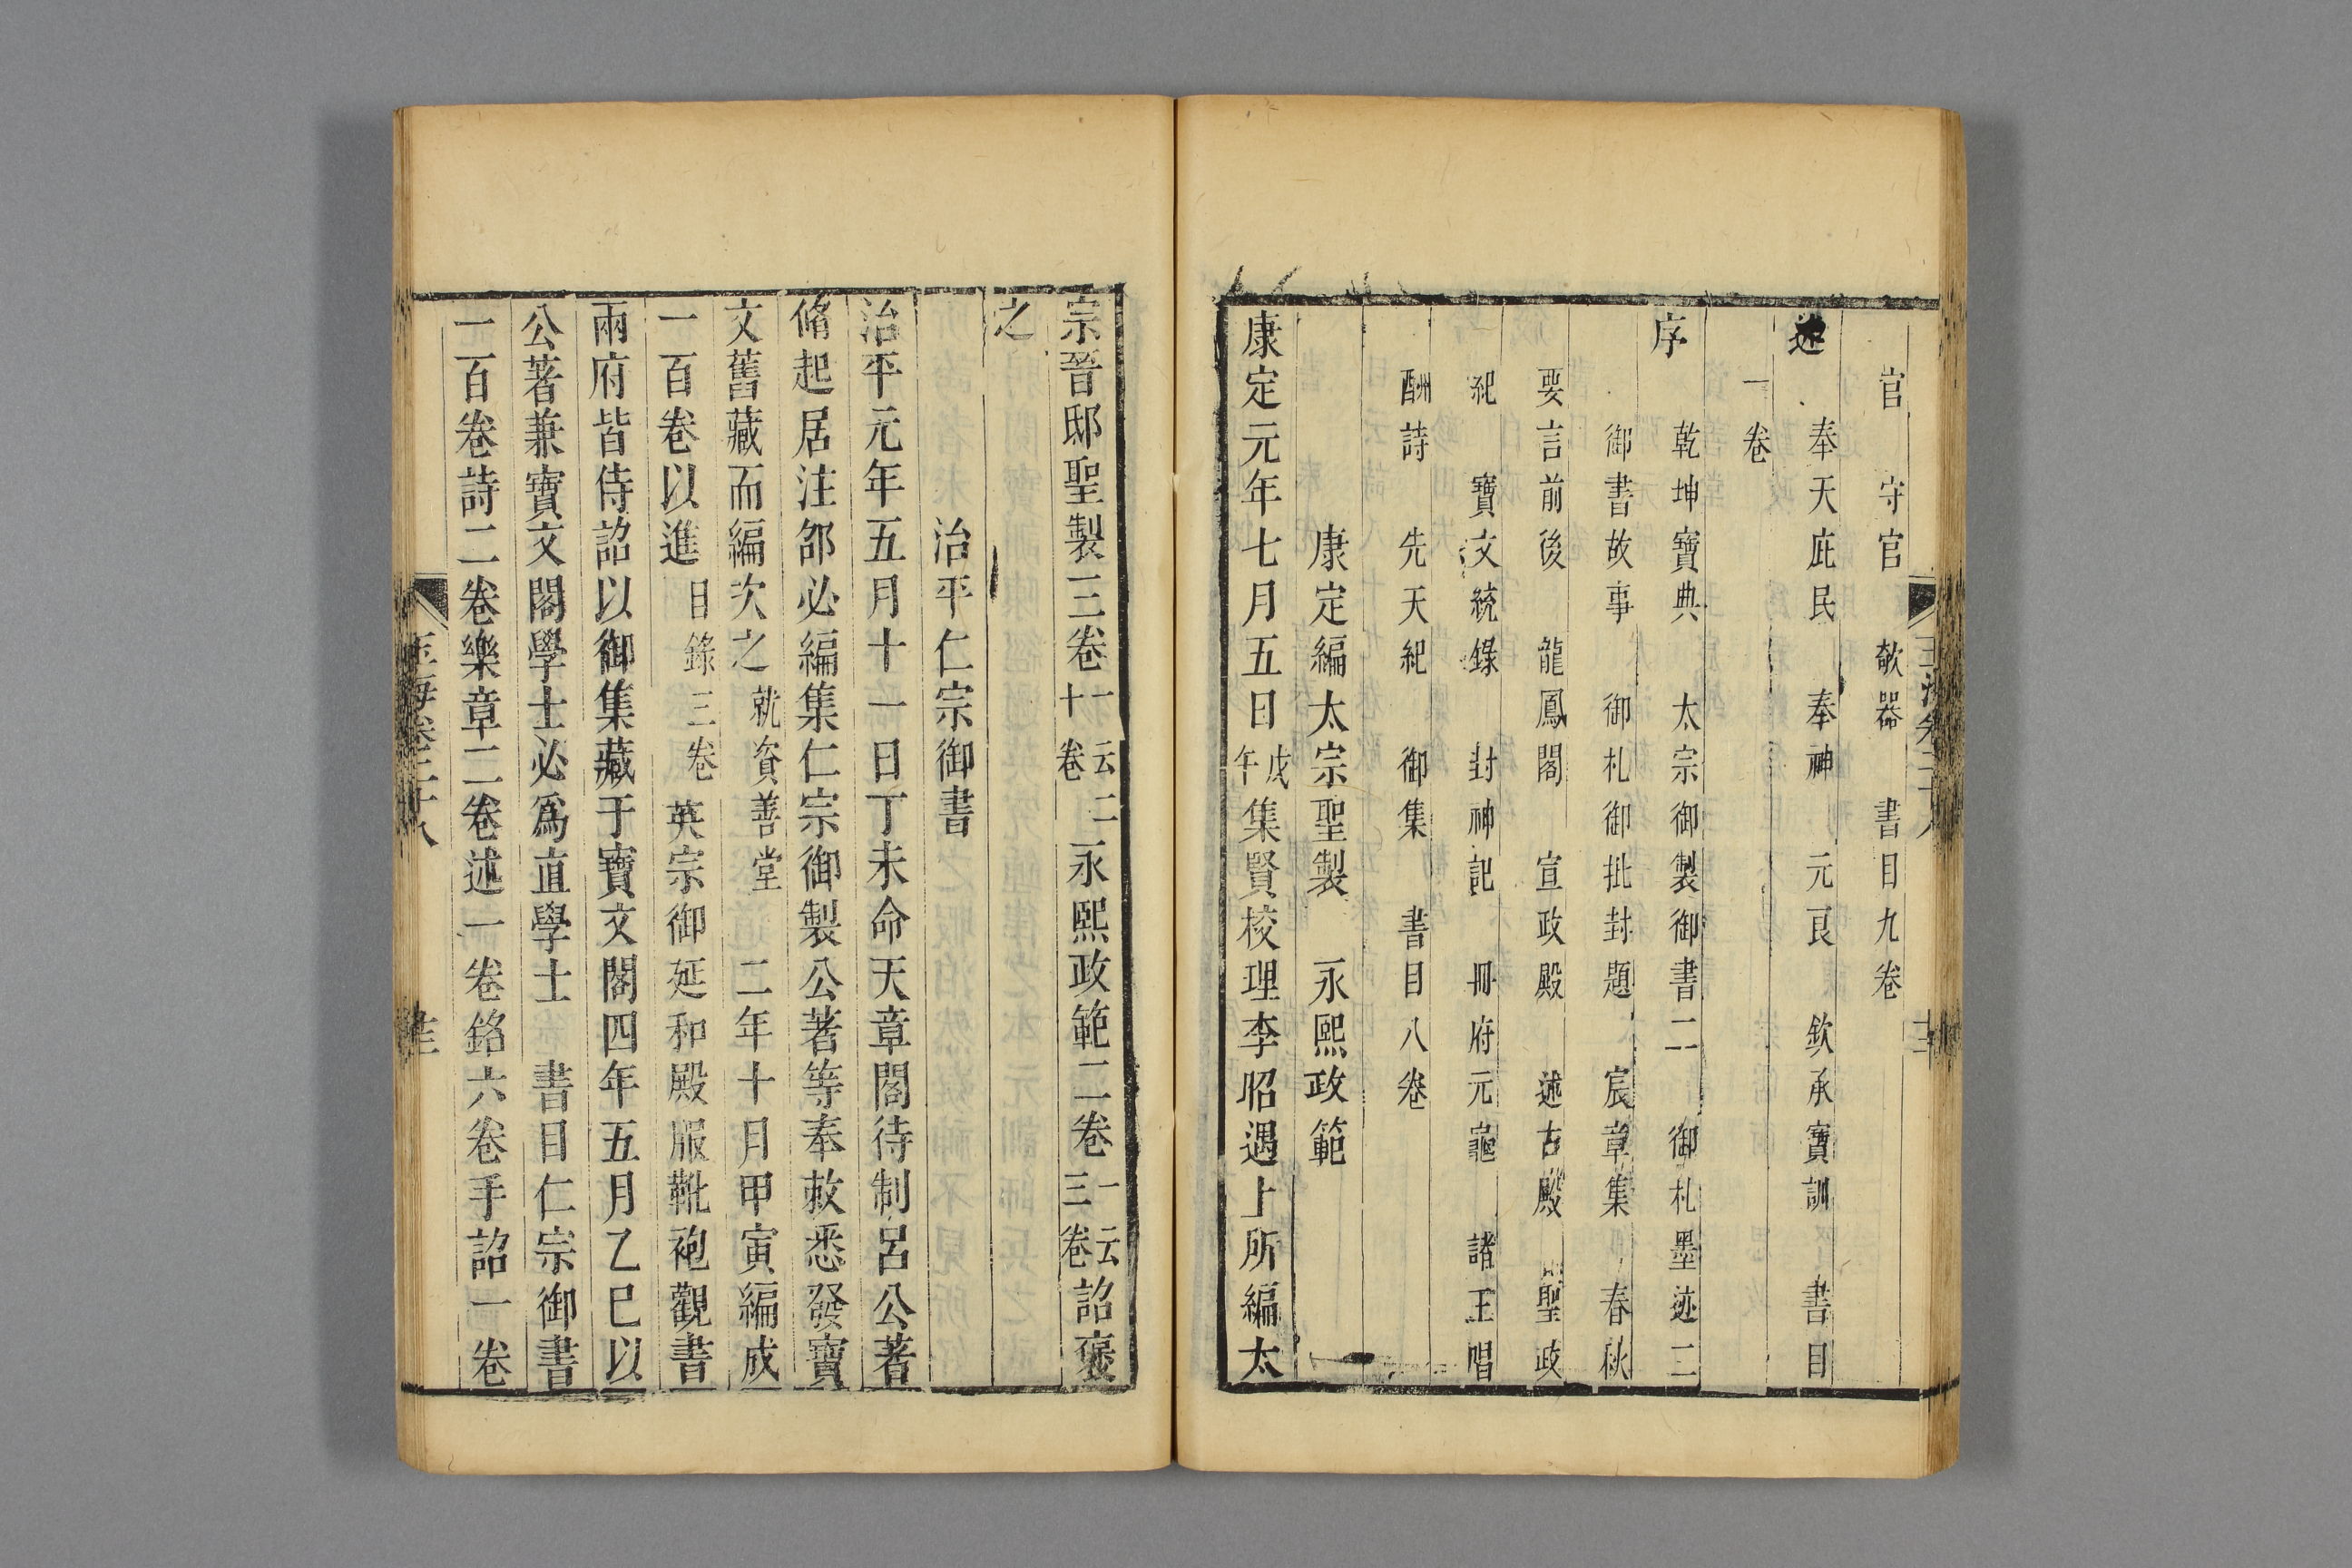 官　守官　欹器　書目九卷
述
奉天庇民　奉神　元良　欽承寶訓　書目
一卷
序
乾坤寶典　太宗御製御書二　御札墨迹二
御書故事　御札御批封題　宸章集　春秋
要言前後　龍鳳閣　宣政殿　述古殿　聖政
紀　寶文統錄　封神記　冊府元龜　諸王唱
酬詩　先天紀　御集　書目八卷
康定編太宗聖製　永熙政範
康定元年七月五日戊午集賢校理李昭遇上所編太
宗晉邸聖製三卷一云十二卷永熙政範二卷一云三卷詔褒
之
治平仁宗御書
治平元年五月十一日丁未命天章閣待制呂公著
脩起居注邵必編集仁宗御製公著等奉敕悉發寶
文舊藏而編次之就資善堂二年十月甲寅編成
一百卷以進目錄三卷英宗御延和殿服靴袍觀書
兩府皆侍詔以御集藏于寶文閣四年五月乙巳以
公著兼寶文閣學士必爲直學士　書目仁宗御書
一百卷詩二卷樂章二卷述一卷銘六卷手詔一卷
玉海卷二十八